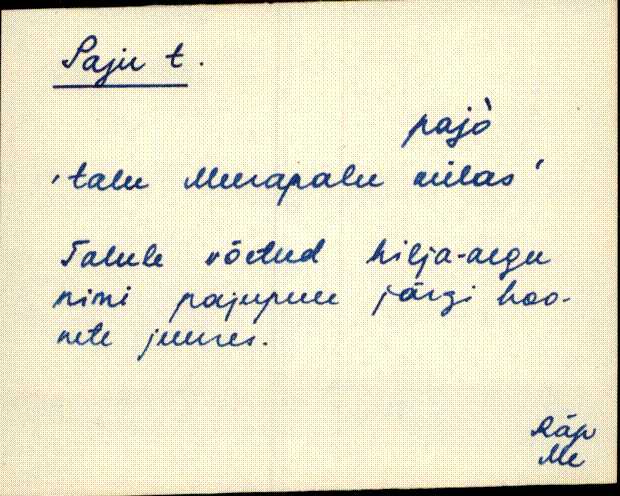 Paju t.
pajò
'talu Meerapalu külas'
Talule võetud hilja-aegu
nimi pajupuu järgi hoo-
nete juures.
Räp
Me